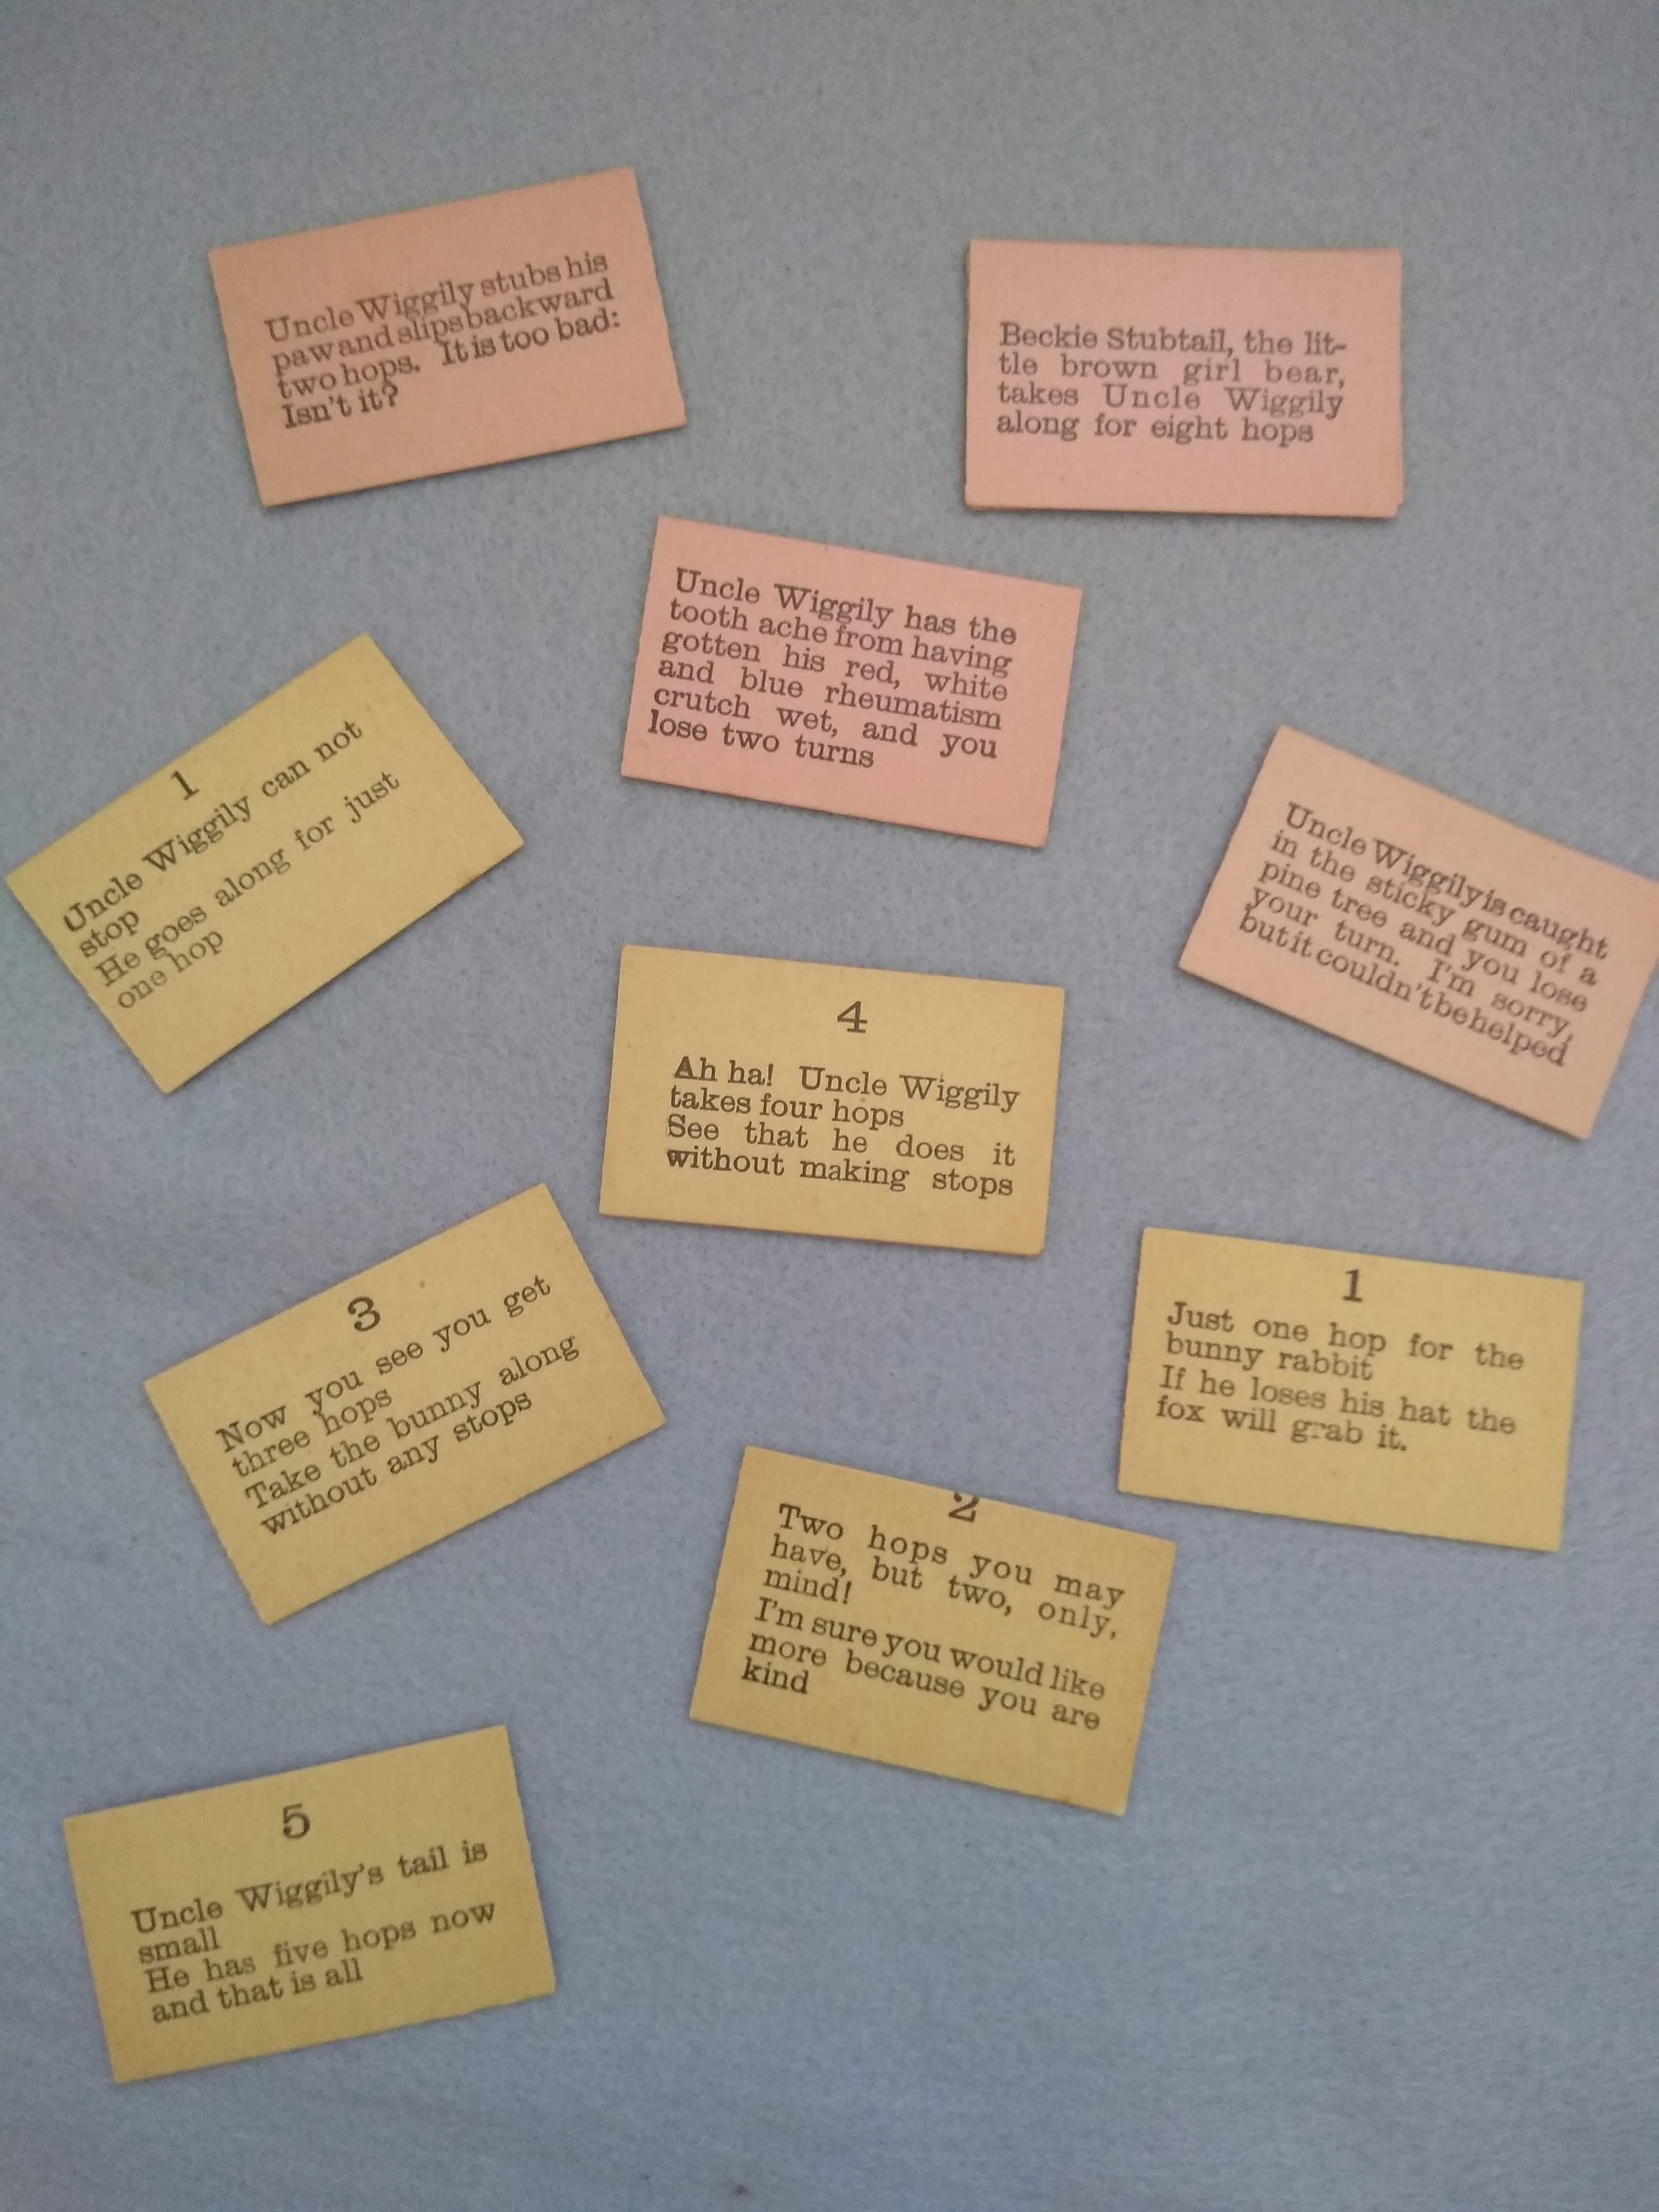 Uncle Wiggily stubs his
paw and slips backward
two hops. It is too bad:
Isn't it?
Beckie Stubtail, the lit-
tle brown girl bear,
takes Uncle Wiggily
along for eight hops
Uncle Wiggily has the
tooth ache from having
gotten his red, white
and blue rheumatism
crutch wet, and you
lose two turns
1
Uncle Wiggily can not
stop
He goes along for just
one hop
Uncle Wiggily is caught
in the sticky gum of a
pine tree and you lose
your turn. I'm sorry,
but it couldn't be helped
4
Ah ha! Uncle Wiggily
takes four hops
See that he does it
without making stops
3
Now you see you get
three hops
Take the bunny along
without any stops
1
Just one hop for the
bunny rabbit
If he loses his hat the
fox will grab it.
2
Two hops you may
have, but two, only,
mind!
I'm sure you would like
more because you are
kind
5
Uncle Wiggily's tail is
small
He has five hops now
and that is all